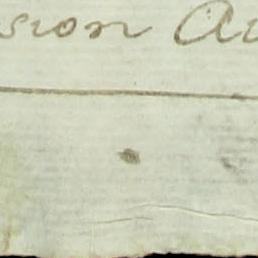 sion Au